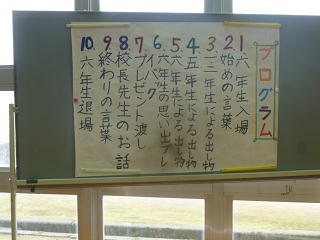 プログラム
1. 六年生入場
2. 始めの言葉
3. 一・二年生による出し物
4. 五年生による出し物
5. 六年生による出し物
6. 六年生の思い出プレイバック
7. プレゼント渡し
8. 校長先生のお話
9. 終わりの言葉
10. 六年生退場